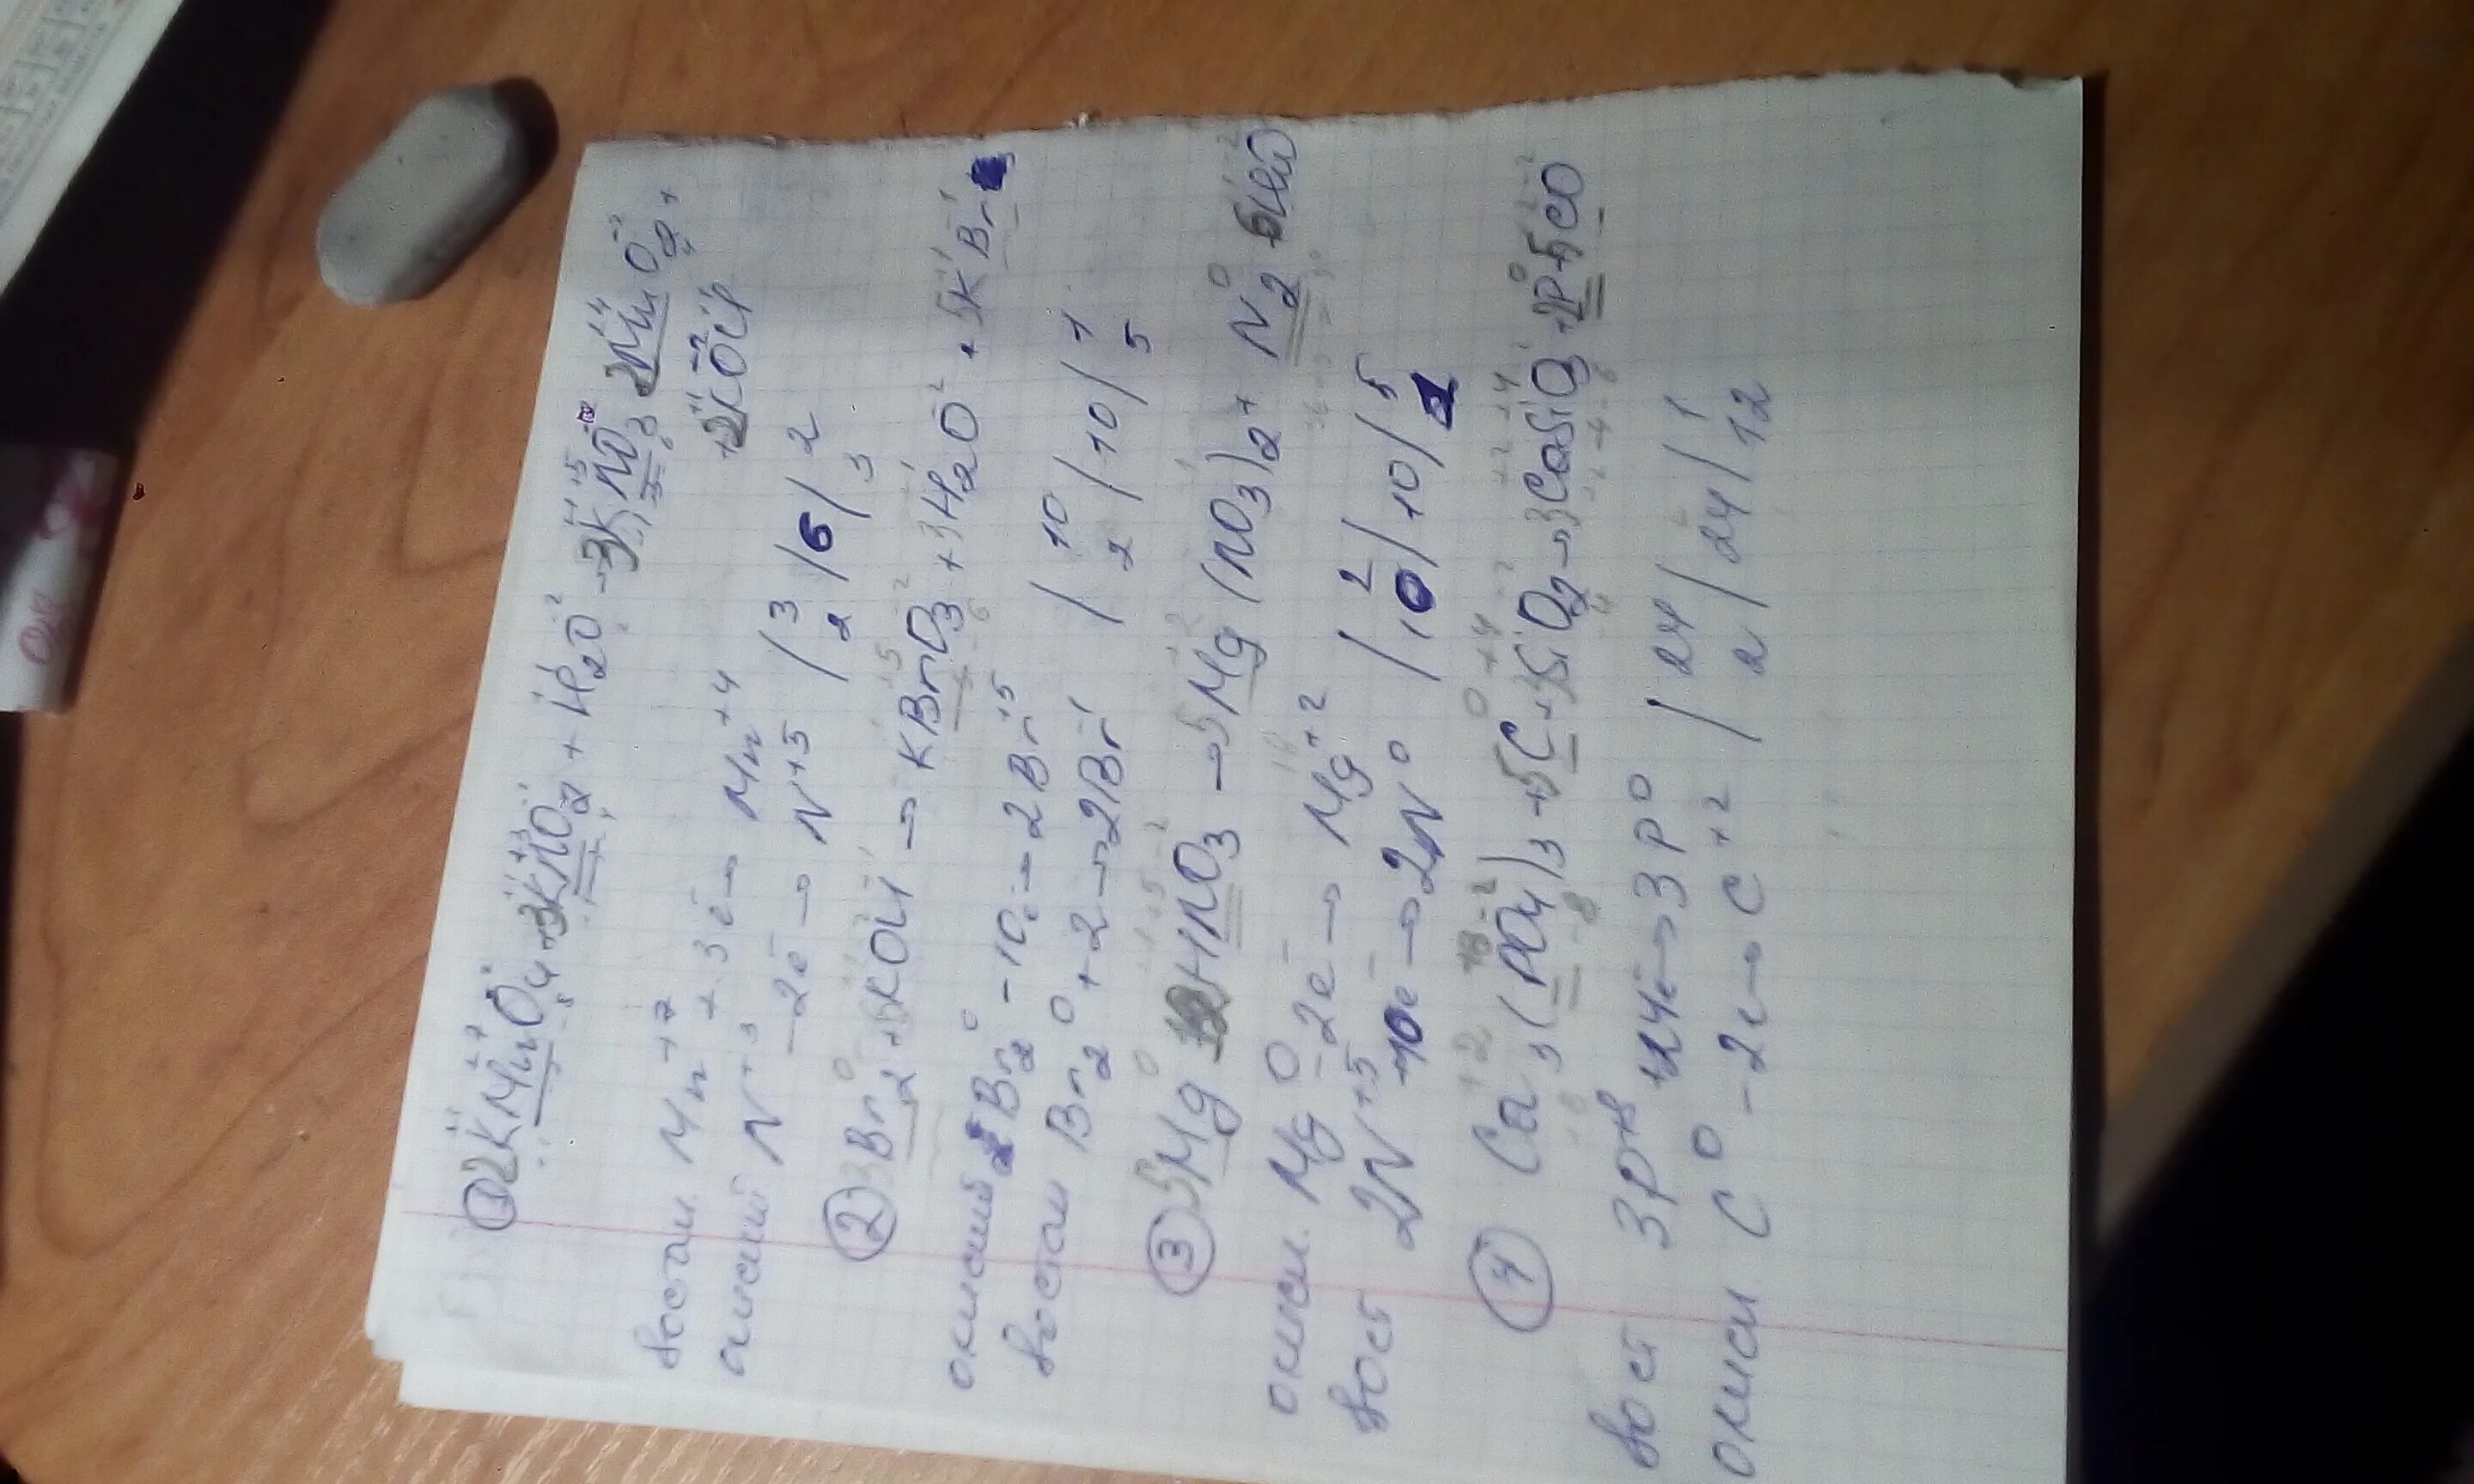 ① 2KMnO4 + 3KNO2 + H2O → 3KNO3 2MnO2 +
+2KOH
восстан. Mn+7 + 3ē → Mn+4 | 3 | 6 | 2
N+3 -2ē → N+5 | 2 | 3
② 3Br2 + 6KOH → KBrO3 + 3H2O + 5KBr
Br2 0 - 10ē → 2Br+5 | 10 | 10 | 1
Br2 0 + 2 → 2Br-1 | 2 | 5
③ 5Mg 12HNO3 → 5Mg(NO3)2 + N2 6H2O
окисл. Mg0 -2ē → Mg+2 | 2 | 10 | 5
восст 2N+5 +10ē → 2N0 | 10 | 1
④ Ca3(PO4)3 + 5C + 3SiO2 → 3CaSiO3 + 2P + 5CO
восст 3P+8 +24ē → 3P0 | 24 | 24 | 1
окисл C0 -2ē → C+2 | 2 | 12